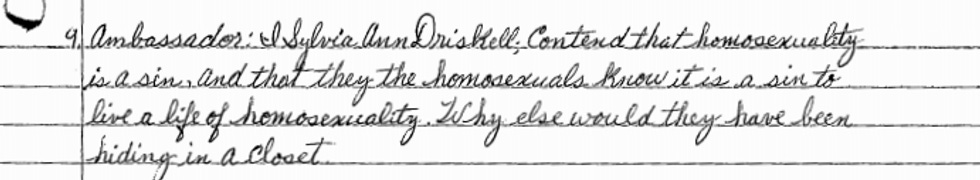 9. Ambassador: I Sylvia Ann Driskell, Contend that homosexuality
is a sin, and that they the homosexuals know it is a sin to
live a life of homosexuality. Why else would they have been
hiding in a closet.